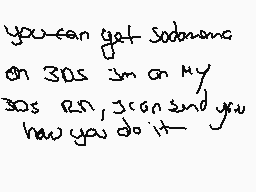 you can get sodomama
on 3DS im on My
3DS RN, I can send you
how you do it